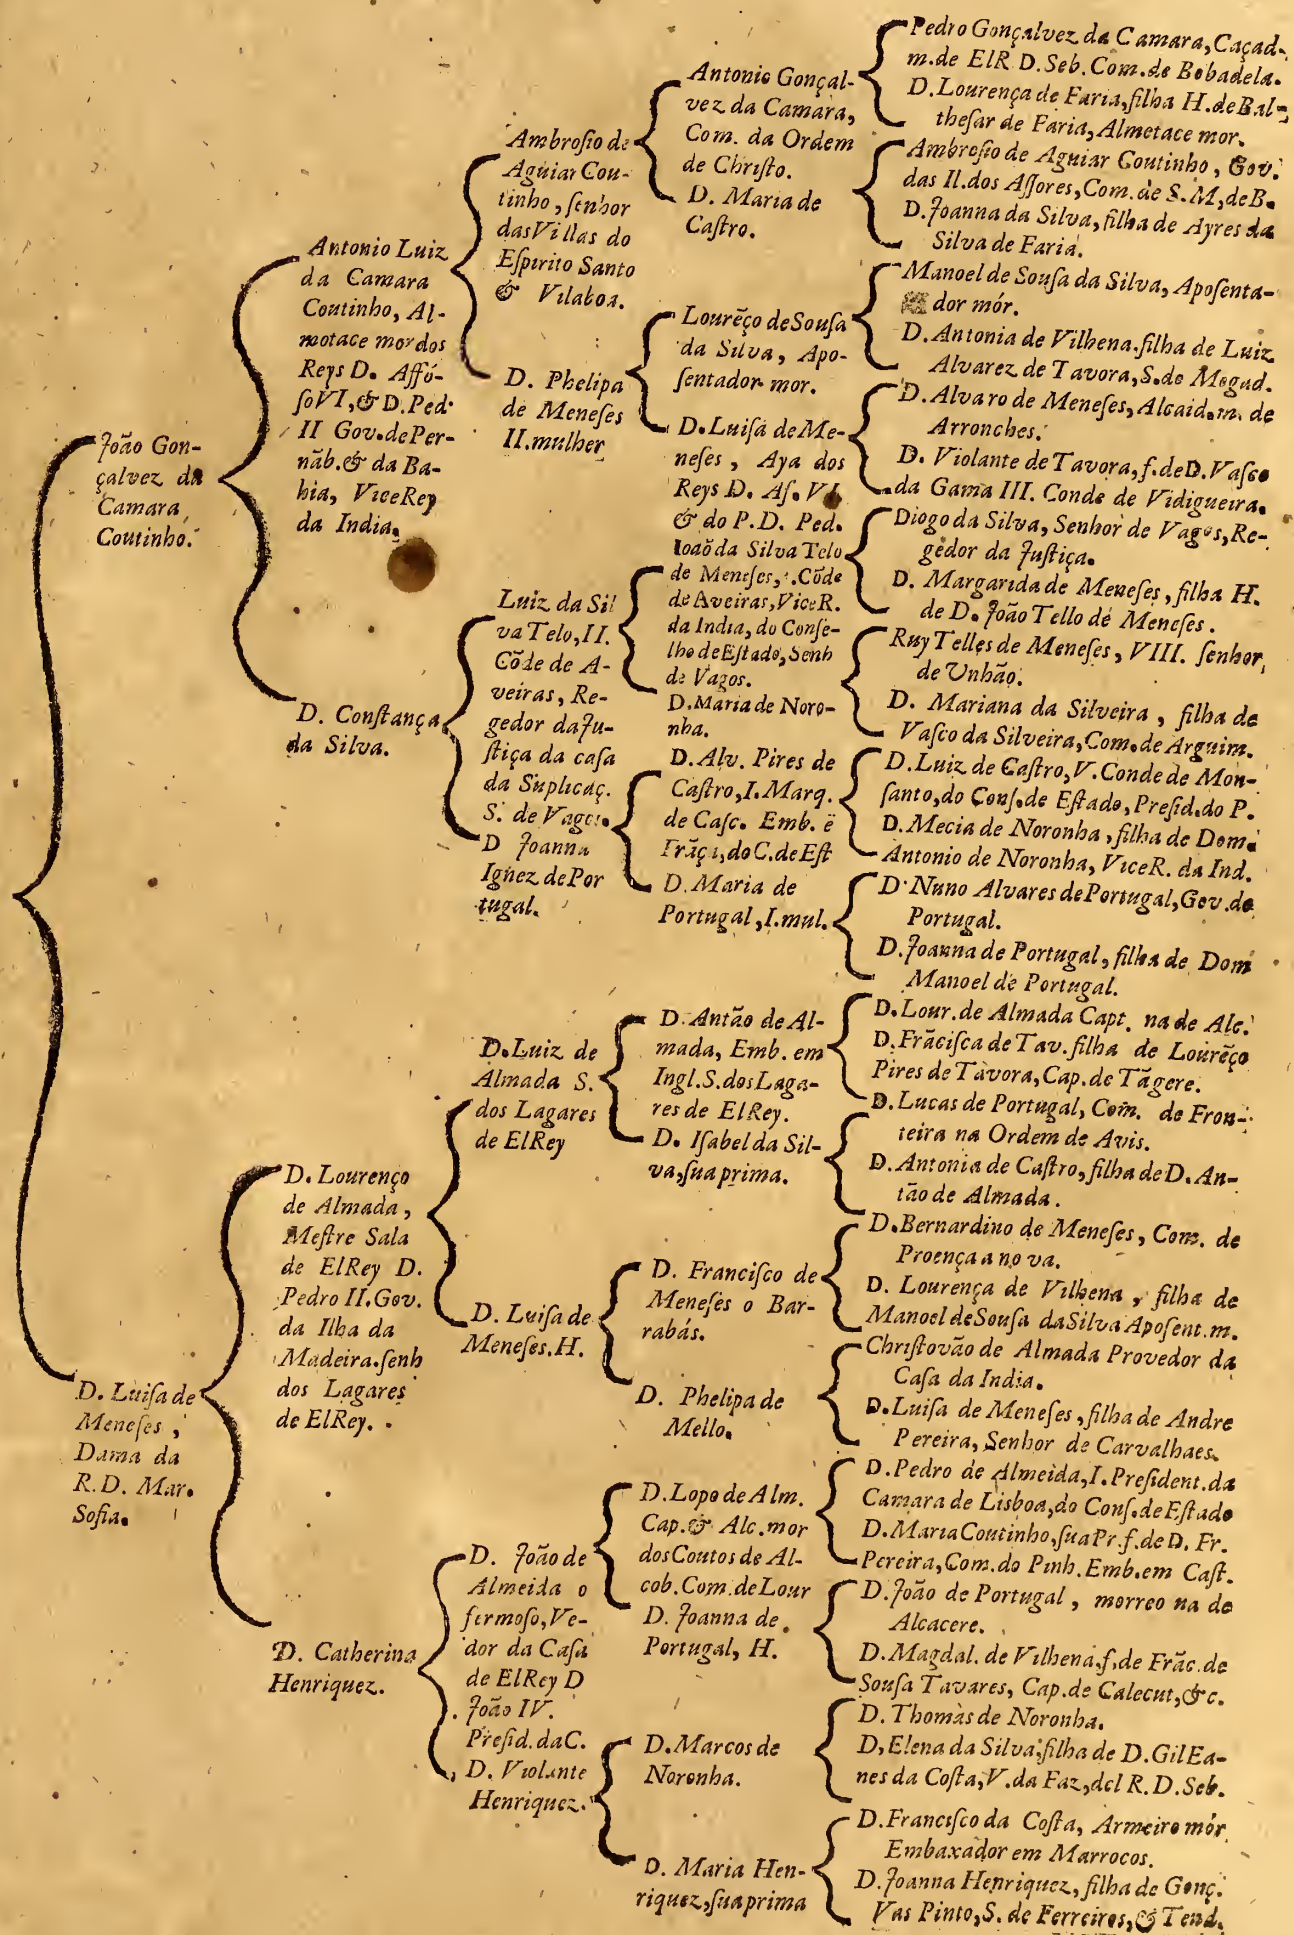 João Gon-
çalvez da
Camara
Coutinho.
D. Luisa de
Meneſes,
Dama da
R. D. Mar.
Sofia.
Antonio Luiz
da Camara
Coutinho, Al-
motace mor dos
Reys D. Affó-
ſo VI, & D. Ped.
II Gov. de Per-
nãb. & da Ba-
hia, Vice Rey
da India.
D. Conſtança
da Silva.
D. Lourenço
de Almada,
Meſtre Sala
de ElRey D.
Pedro II. Gov.
da Ilha da
Madeira. ſenh
dos Lagares
de ElRey.
D. Catherina
Henriquez.
Ambroſio de
Aguiar Cou-
tinho, ſenhor
das Villas do
Eſpirito Santo
& Vilaboa.
D. Phelipa
de Meneſes
II. mulher
Luiz da Sil
va Telo, II.
Cõde de A-
veiras, Re-
gedor da Ju-
ſtiça da caſa
da Suplicaç.
S. de Vagos.
D Joanna
Ignez de Por
tugal.
D. Luiz de
Almada S.
dos Lagares
de ElRey
D. Luiſa de
Meneſes. H.
D. João de
Almeida o
fermoſo, Ve-
dor da Caſa
de ElRey D
João IV.
Preſid. da C.
D. Violante
Henriquez.
Antonio Gonçal-
vez da Camara,
Com. da Ordem
de Chriſto.
D. Maria de
Caſtro.
Lourẽço de Souſa
da Silva, Apo-
ſentador mor.
D. Luiſa de Me-
neſes, Aya dos
Reys D. Af. VI
& do P. D. Ped.
Ioaõ da Silva Telo
de Meneſes, I. Cõde
de Aveiras, Vice R.
da India, do Conſe-
lho de Eſtado, Senh
de Vagos.
D. Maria de Noro-
nha.
D. Alv. Pires de
Caſtro, I. Marq.
de Caſc. Emb. ẽ
Frãça, do C. de Eſt
D. Maria de
Portugal, I. mul.
D. Antão de Al-
mada, Emb. em
Ingl. S. dos Laga-
res de ElRey.
D. Iſabel da Sil-
va, ſua prima.
D. Franciſco de
Meneſes o Bar-
rabás.
D. Phelipa de
Mello.
D. Lopo de Alm.
Cap. & Alc. mor
dos Coutos de Al-
cob. Com. de Lour
D. Joanna de
Portugal, H.
D. Marcos de
Noronha.
D. Maria Hen-
riquez, ſua prima
Pedro Gonçalvez da Camara, Caçad-
m. de ElR D. Seb. Com. de Bobadela.
D. Lourença de Faria, filha H. de Bal-
theſar de Faria, Almetace mor.
Ambroſio de Aguiar Coutinho, Gov.
das Il. dos Aſſores, Com. de S. M, de B.
D. Joanna da Silva, filha de Ayres da
Silva de Faria.
Manoel de Souſa da Silva, Apoſenta-
dor mór.
D. Antonia de Vilhena. filha de Luiz
Alvarez de Tavora, S. do Mogad.
D. Alvaro de Meneſes, Alcaid. m. de
Arronches.
D. Violante de Tavora, f. de D. Vaſco
da Gama III. Conde de Vidigueira.
Diogo da Silva, Senhor de Vagos, Re-
gedor da Juſtiça.
D. Margarida de Meneſes, filha H.
de D. João Tello de Meneſes.
Ruy Telles de Meneſes, VIII. ſenhor
de Unhão.
D. Mariana da Silveira, filha de
Vaſco da Silveira, Com. de Arguim.
D. Luiz de Caſtro, V. Conde de Mon-
ſanto, do Conſ. de Eſtado, Preſid. do P.
D. Mecia de Noronha, filha de Dom
Antonio de Noronha, Vice R. da Ind.
D. Nuno Alvares de Portugal, Gov. de
Portugal.
D. Joanna de Portugal, filha de Dom
Manoel de Portugal.
D. Lour. de Almada Capt. na de Alc.
D. Frãciſca de Tav. filha de Lourẽço
Pires de Tàvora, Cap. de Tãgere.
D. Lucas de Portugal, Com. de Fron-
teira na Ordem de Avis.
D. Antonia de Caſtro, filha de D. An-
tão de Almada.
D. Bernardino de Meneſes, Com. de
Proença a nova.
D. Lourença de Vilhena, filha de
Manoel de Souſa da Silva Apoſent. m.
Chriſtovão de Almada Provedor da
Caſa da India.
D. Luiſa de Meneſes, filha de Andre
Pereira, Senhor de Carvalhaes.
D. Pedro de Almeida, I. Preſident. da
Camara de Lisboa, do Conſ. de Eſtado
D. Maria Coutinho, ſua Pr. f. de D. Fr.
Pereira, Com. do Pinh. Emb. em Caſt.
D. João de Portugal, morreo na de
Alcacere.
D. Magdal. de Vilhena, f. de Frãc. de
Souſa Tavares, Cap. de Calecut, &c.
D. Thomàs de Noronha.
D, Elena da Silva, filha de D. Gil Ea-
nes da Coſta, V. da Faz, del R. D. Seb.
D. Franciſco da Coſta, Armeiro mór
Embaxador em Marrocos.
D. Joanna Henriquez, filha de Gonç.
Vas Pinto, S. de Ferreiros, & Tend.